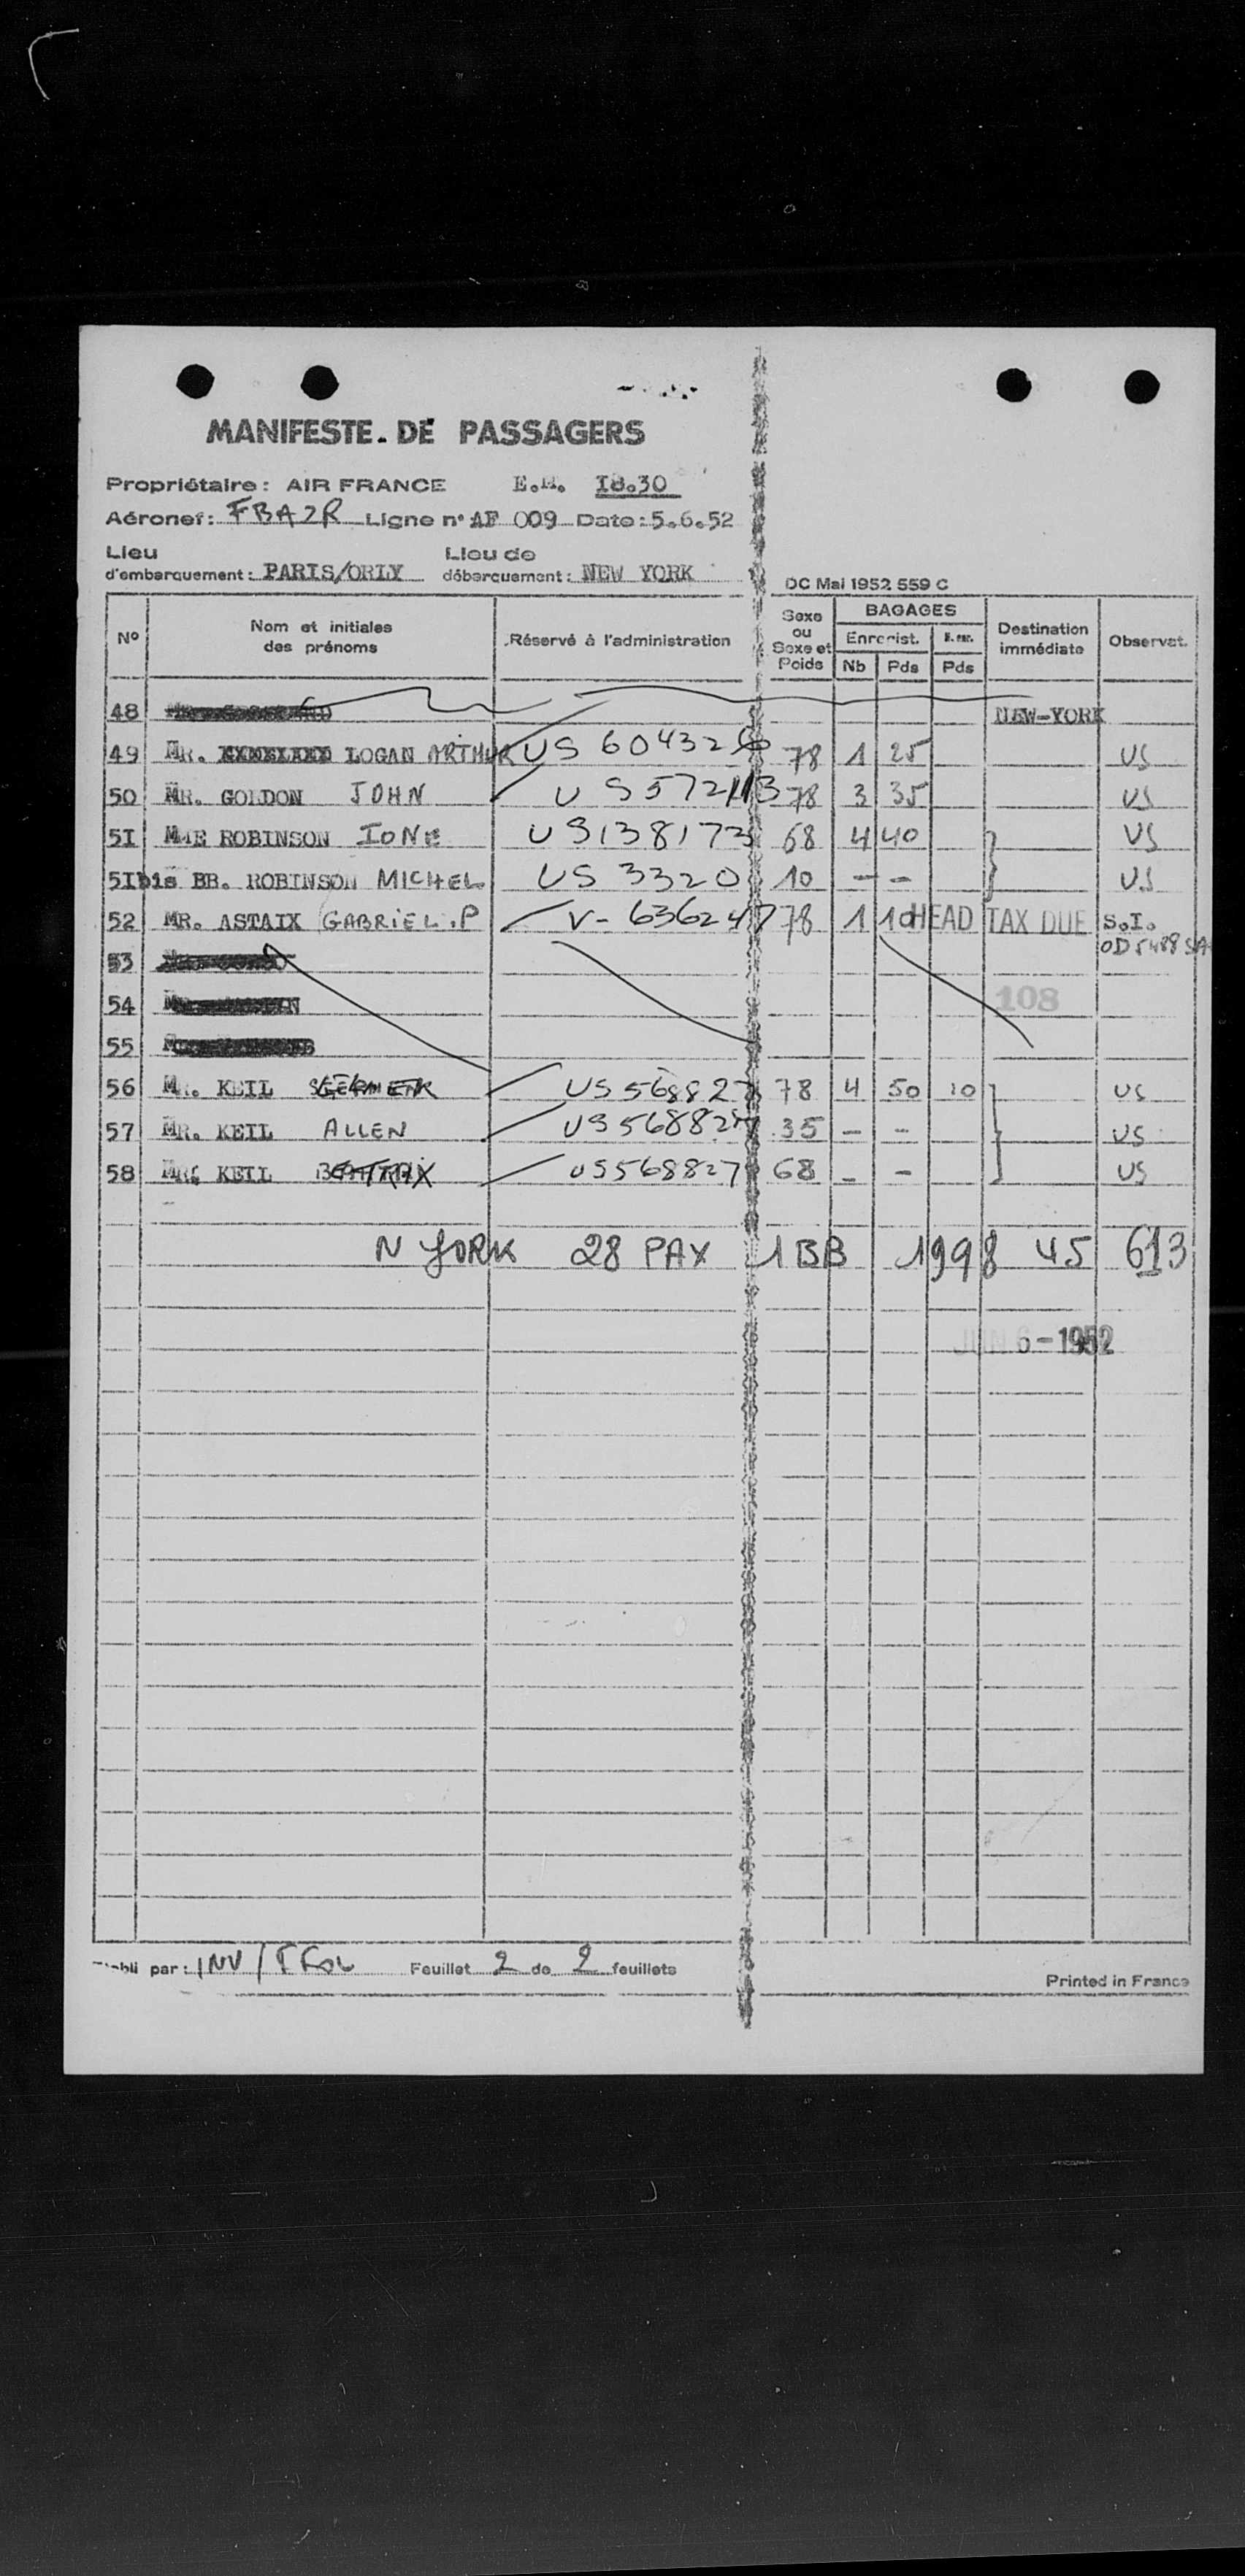 MANIFESTE DE PASSAGERS
Propriétaire: AIR FRANCE E.H. I8.30
Aéronef: FBAZR Ligne n° AF 009 Date: 5.6.52
Lieu d'embarquement: PARIS/ORLY Lieu de débarquement: NEW YORK
DC Mai 1952 559 C
N° Nom et initiales des prénoms Réservé à l'administration Sexe ou Sexe et Poids BAGAGES Enregist. Nb Pds Pds Destination immédiate Observat.
48 NEW-YORK
49 MR. LOGAN ARTHUR US 604326 78 1 25 US
50 MR. GOLDON JOHN US 572113 78 3 35 US
5I MME ROBINSON IONE US 138173 68 4 40 US
5Ibis BB. ROBINSON MICHEL US 3320 10 - - US
52 MR. ASTAIX GABRIEL.P V- 636247 78 1 10 HEAD TAX DUE S.I.
53
54 108
55
56 MR. KEIL US 568827 78 4 50 10 US
57 MR. KEIL ALLEN US 568827 35 - - US
58 KEIL BEATRIX US 568827 68 - - US
N YORK 28 PAX 1 BB 1998 45 613
JUN 6-1952
par: INV / Feuillet 2 de 2 feuillets
Printed in France